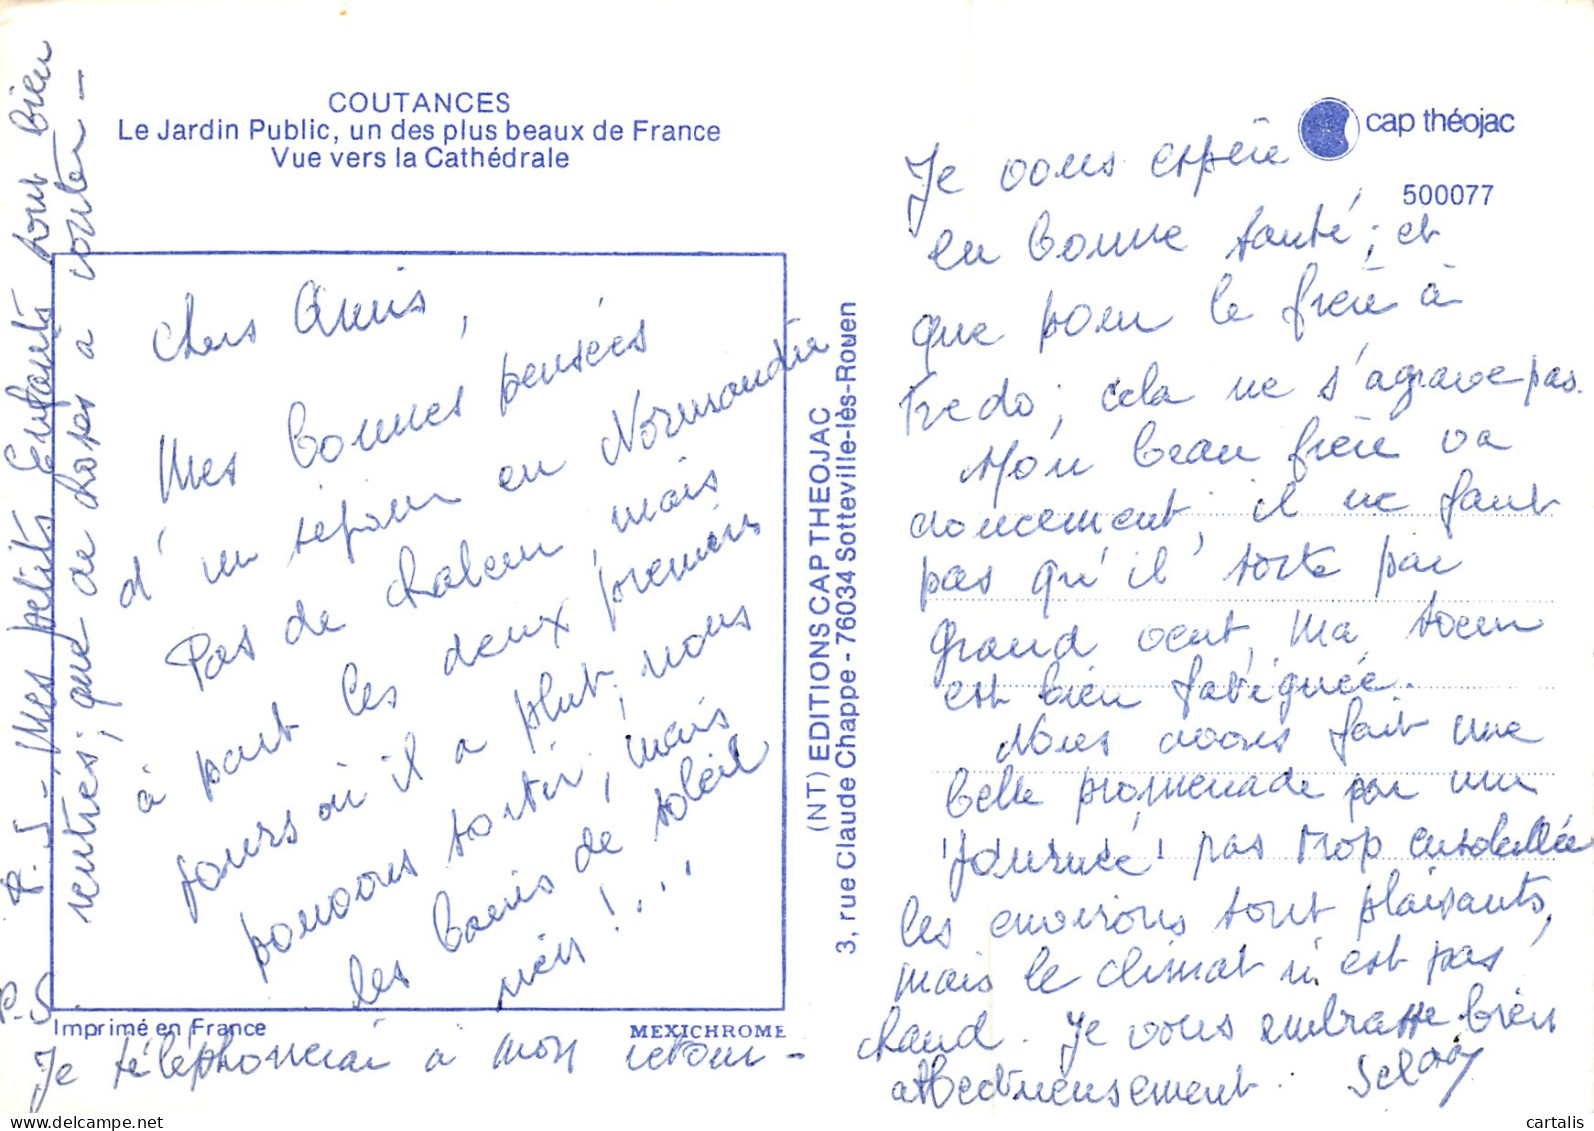 COUTANCES
Le Jardin Public, un des plus beaux de France
Vue vers la Cathédrale
cap théojac
500077
Chers Amis,
Mes bonnes pensées
d'un séjour en Normandie
Pas de chaleur, mais
à part les deux premiers
jours où il a plut, nous
pouvons sortir, mais
les bains de soleil
rien !...
Je vous espère
en bonne santé ; et
que pour le frère à
Fredo ; cela ne s'agrave pas.
Mon beau frère va
doucement, il ne faut
pas qu'il sorte par
grand vent, Ma soeur
est bien fatiguée.
Nous avons fait une
belle promenade par une
journée pas trop ensoleillée
les environs sont plaisants,
mais le climat n'est pas
chaud. Je vous embrasse bien
affectueusement.
P.S. Mes petits Enfants sont bien
rentrés ; que de choses a conter -
P.S.
Je téléphonerai a mon retour -
(NT) EDITIONS CAP THEOJAC
3, rue Claude Chappe - 76034 Sotteville-lès-Rouen
Imprimé en France
MEXICHROME
cartalis
www.delcampe.net